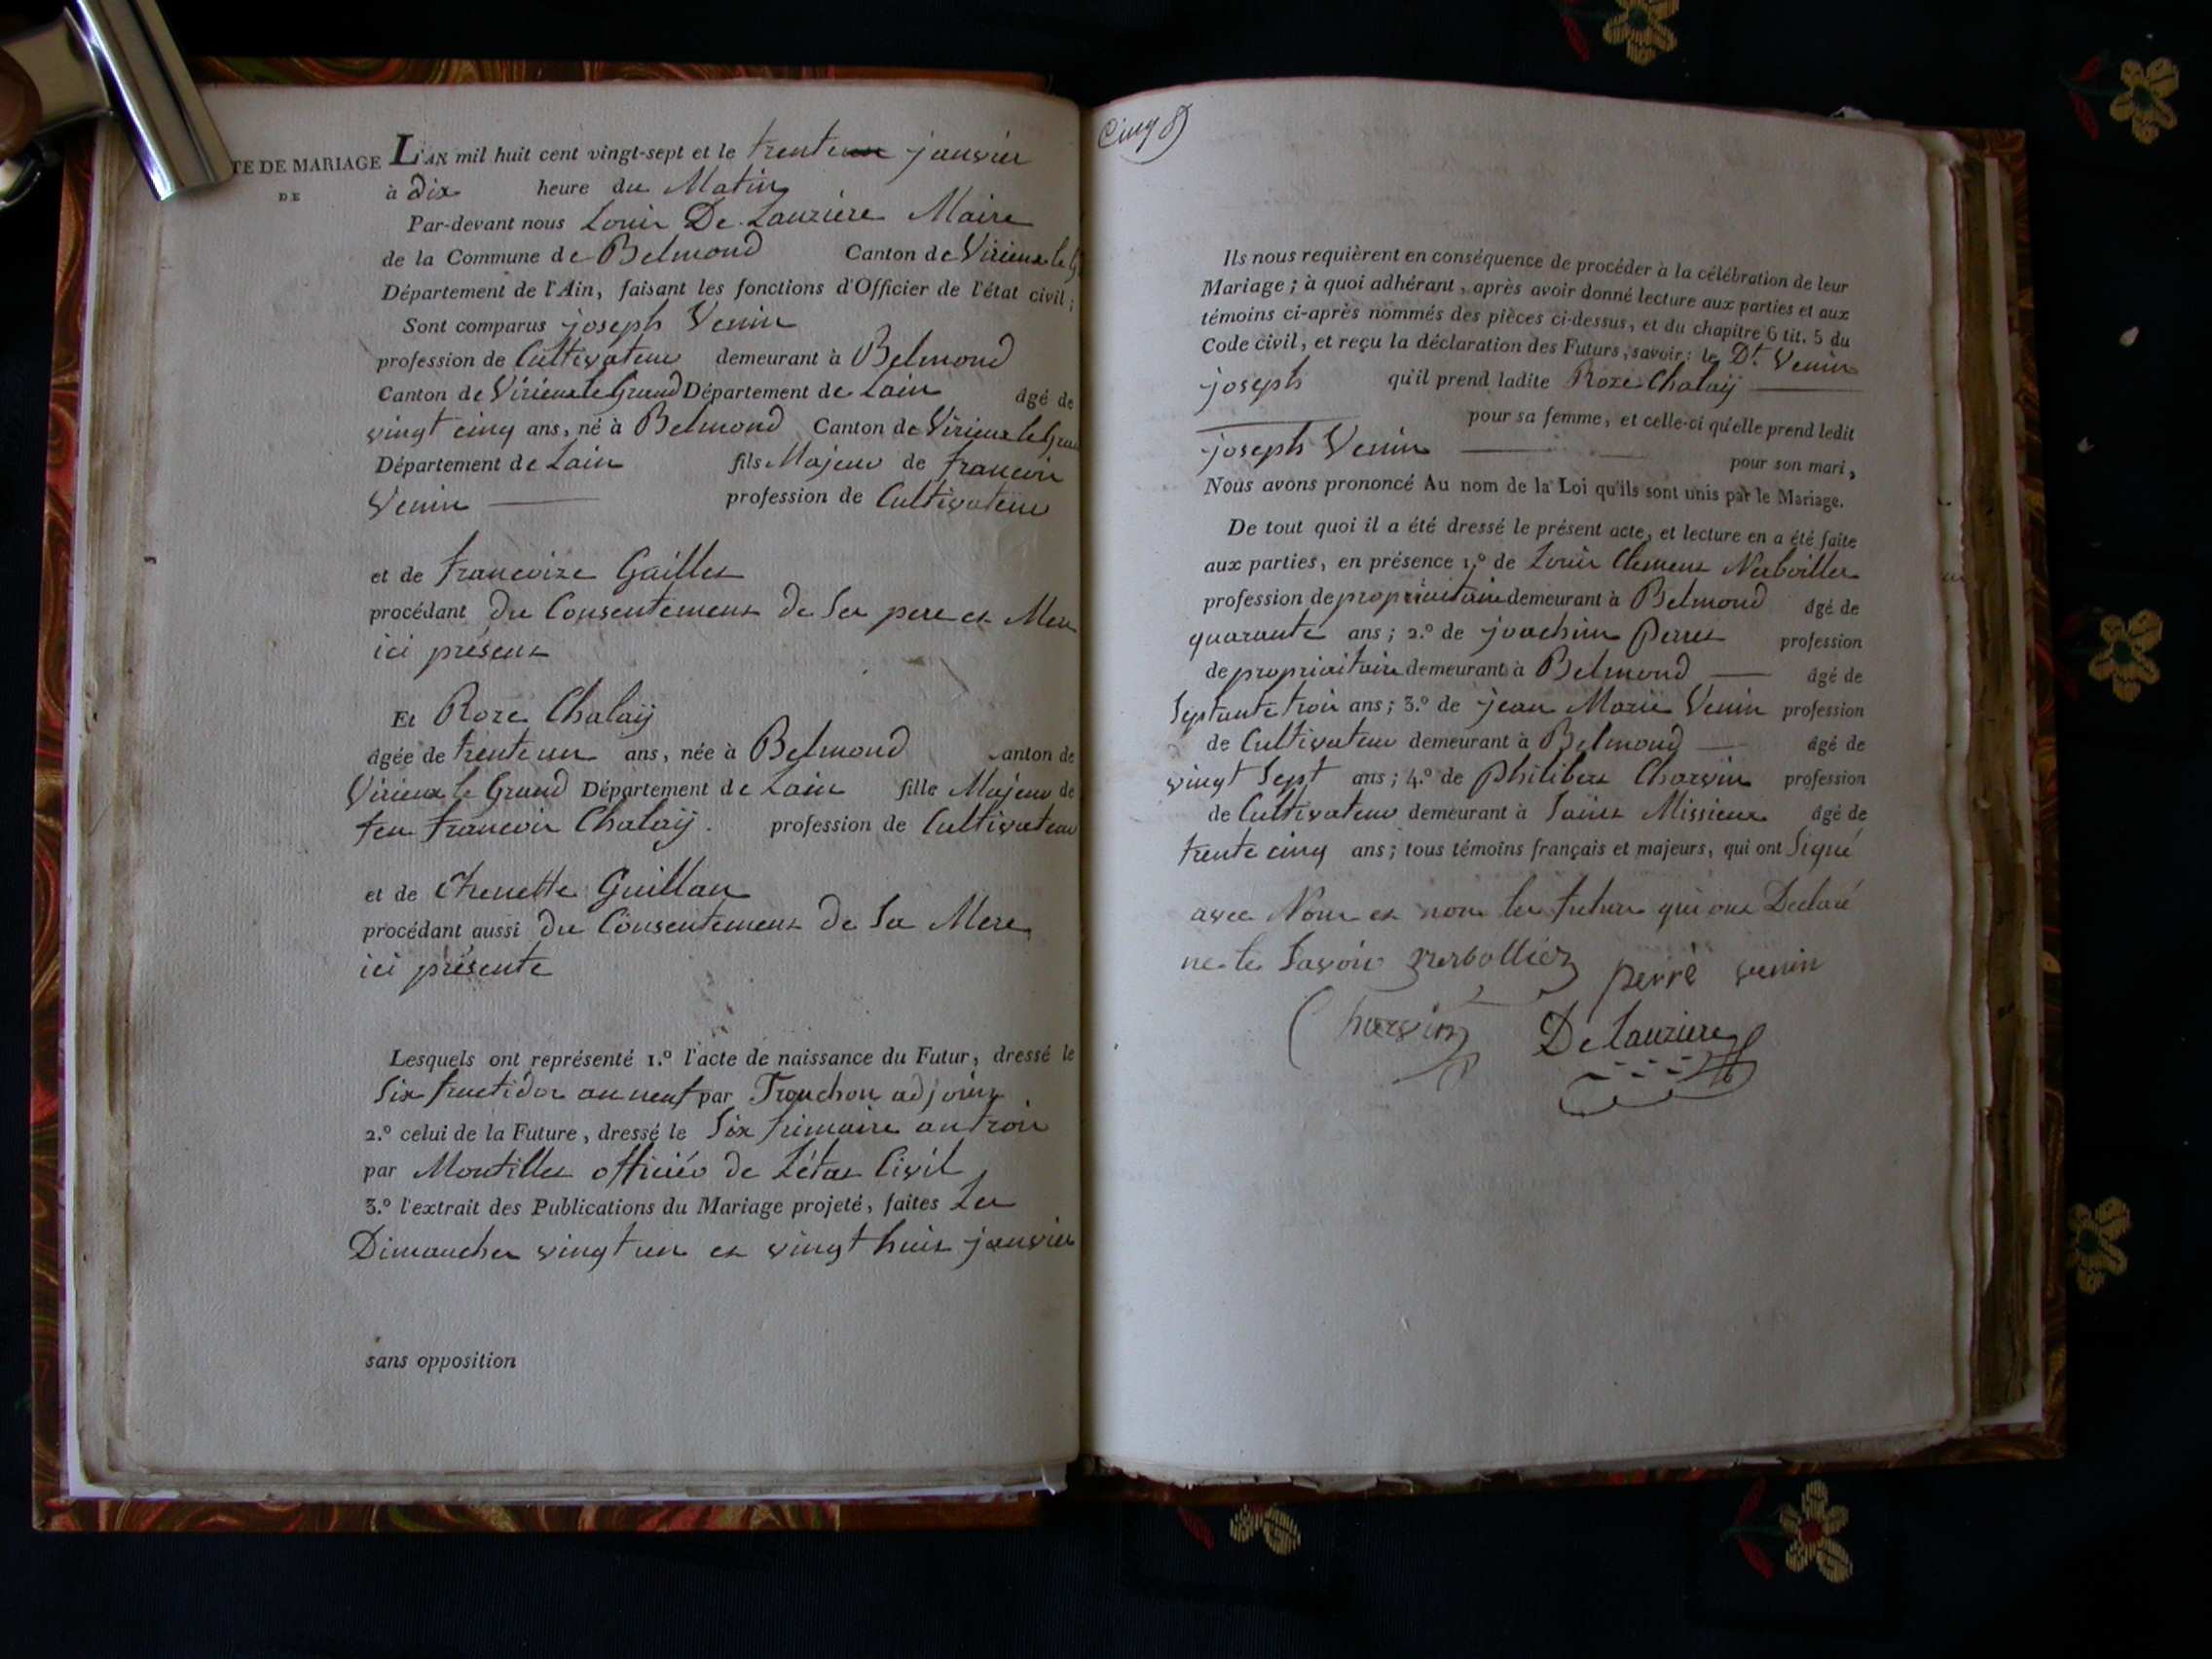 TE DE MARIAGE
DE
L'AN mil huit cent vingt-sept et le trente janvier
à dix heure du Matin
Par-devant nous Louis De Lauziere Maire
de la Commune de Belmond Canton de Virieux le G
Département de l'Ain, faisant les fonctions d'Officier de l'état civil;
Sont comparus joseph Venin
profession de Cultivateur demeurant à Belmond
Canton de Virieux le Grand Département de Lain âgé de
vingt cinq ans, né à Belmond Canton de Virieux le Gran
Département de Lain fils Majeur de francois
Venin profession de Cultivateur
et de francoize Gaillet
procédant du Consentement de Ses pere et Mere
ici présent
Et Roze Chalaÿ
âgée de trente un ans, née à Belmond anton de
Virieux le Grand Département de Lain fille Majeur de
feu francois Chalaÿ. profession de Cultivateur
et de Guillan
procédant aussi du Consentement de Sa Mere
ici présente
Lesquels ont représenté 1.º l'acte de naissance du Futur, dressé le
Six fructidor an neuf par Trouchon adjoint
2.º celui de la Future, dressé le Six frimaire an trois
par Montillet officiér de Létat Civil
3.º l'extrait des Publications du Mariage projeté, faites Les
Dimanches vingt un et vingt huit janvier
sans opposition
Cinq
Ils nous requièrent en conséquence de procéder à la célébration de leur
Mariage; à quoi adhérant, après avoir donné lecture aux parties et aux
témoins ci-après nommés des pièces ci-dessus, et du chapitre 6 tit. 5 du
Code civil, et reçu la déclaration des Futurs, savoir: le Dt. Venin
joseph qu'il prend ladite Roze Chalaÿ
pour sa femme, et celle-ci qu'elle prend ledit
joseph Venin pour son mari,
Nous avons prononcé Au nom de la Loi qu'ils sont unis par le Mariage.
De tout quoi il a été dressé le présent acte, et lecture en a été faite
aux parties, en présence 1.º de Louis Clement Nerboillet
profession de propriaitaire demeurant à Belmond âgé de
quarante ans; 2.º de joachim Perret profession
de propriaitaire demeurant à Belmond âgé de
Septante trois ans; 3.º de jean Marie Venin profession
de Cultivateur demeurant à Belmond âgé de
vingt Sept ans; 4.º de philibert Charvin profession
de Cultivateur demeurant à Saint Missieux âgé de
trente cinq ans; tous témoins français et majeurs, qui ont Signé
avec Nous et non les futurs qui ont Declaré
ne le Savoir Nerbolliéz perré venin
Charvin De Lauziere